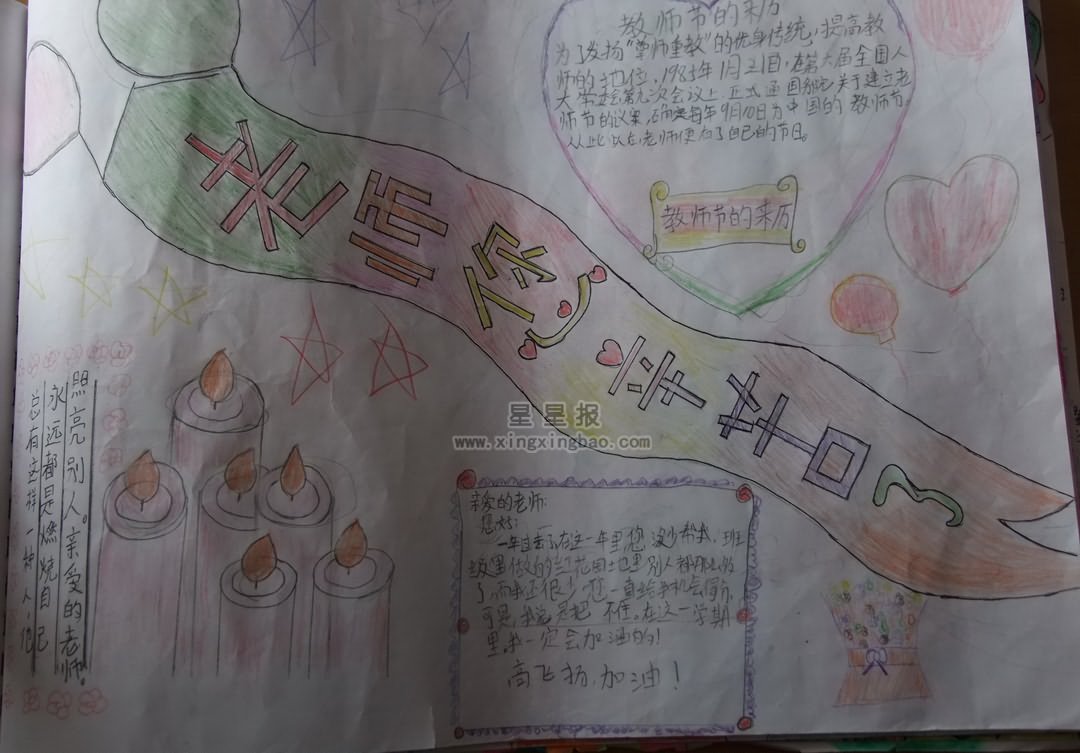 教师节的来历
为了发扬“尊师重教”的优良传统，提高教
师的地位，1985年1月21日，在第六届全国人
大常委会第九次会议上，正式通国务院关于建立老
师节的议案，确定每年9月10日为中国的教师节。
从此以后老师便有了自己的节日。
教师节的来历
老师您辛苦了
星星报
www.xingxingbao.com
照亮别人。亲爱的老师。
永远都是燃烧自己
总有这样一种人 他
亲爱的老师：
您好：
一年过去了，在这一年里您没少帮我，班
级里做的红花园土也里别人都那么多
了，而我还很少，您一直给我机会
可是，我总是把不住。在这一学期
里，我一定会加油的！
高飞扬，加油！